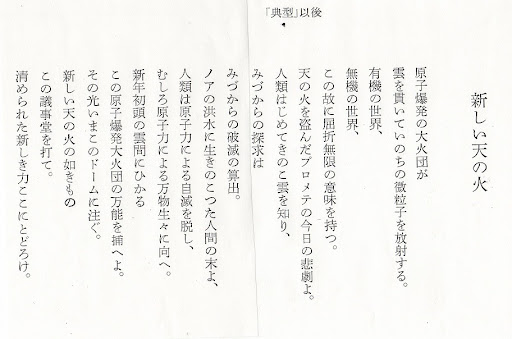 「典型」以後
新しい天の火
原子爆発の大火団が
雲を貫いていのちの微粒子を放射する。
有機の世界、
無機の世界、
この故に屈折無限の意味を持つ。
天の火を盗んだプロメテの今日の悲劇よ。
人類はじめてきのこ雲を知り、
みづからの探求は
みづからの破滅の算出。
ノアの洪水に生きのこつた人間の末よ、
人類は原子力による自滅を脱し、
むしろ原子力による万物生々に向へ。
新年初頭の雲間にひかる
この原子爆発大火団の万能を捕へよ。
その光いまこのドームに注ぐ。
新しい天の火の如きもの
この議事堂を打て。
清められた新しき力ここにとどろけ。